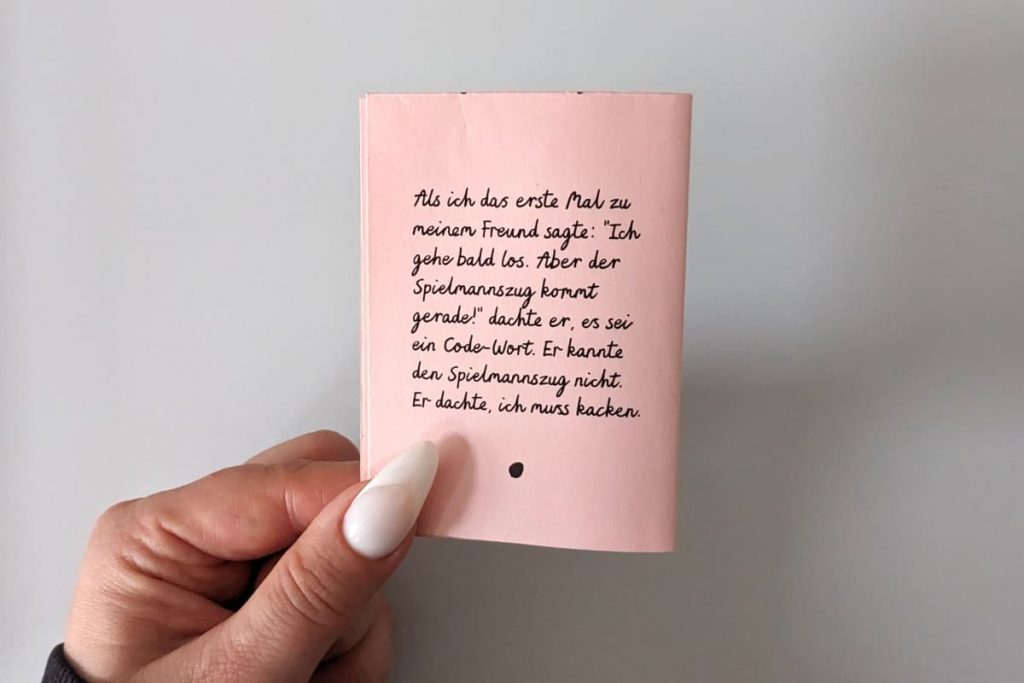 Als ich das erste Mal zu
meinem Freund sagte: "Ich
gehe bald los. Aber der
Spielmannszug kommt
gerade!" dachte er, es sei
ein Code-Wort. Er kannte
den Spielmannszug nicht.
Er dachte, ich muss kacken.